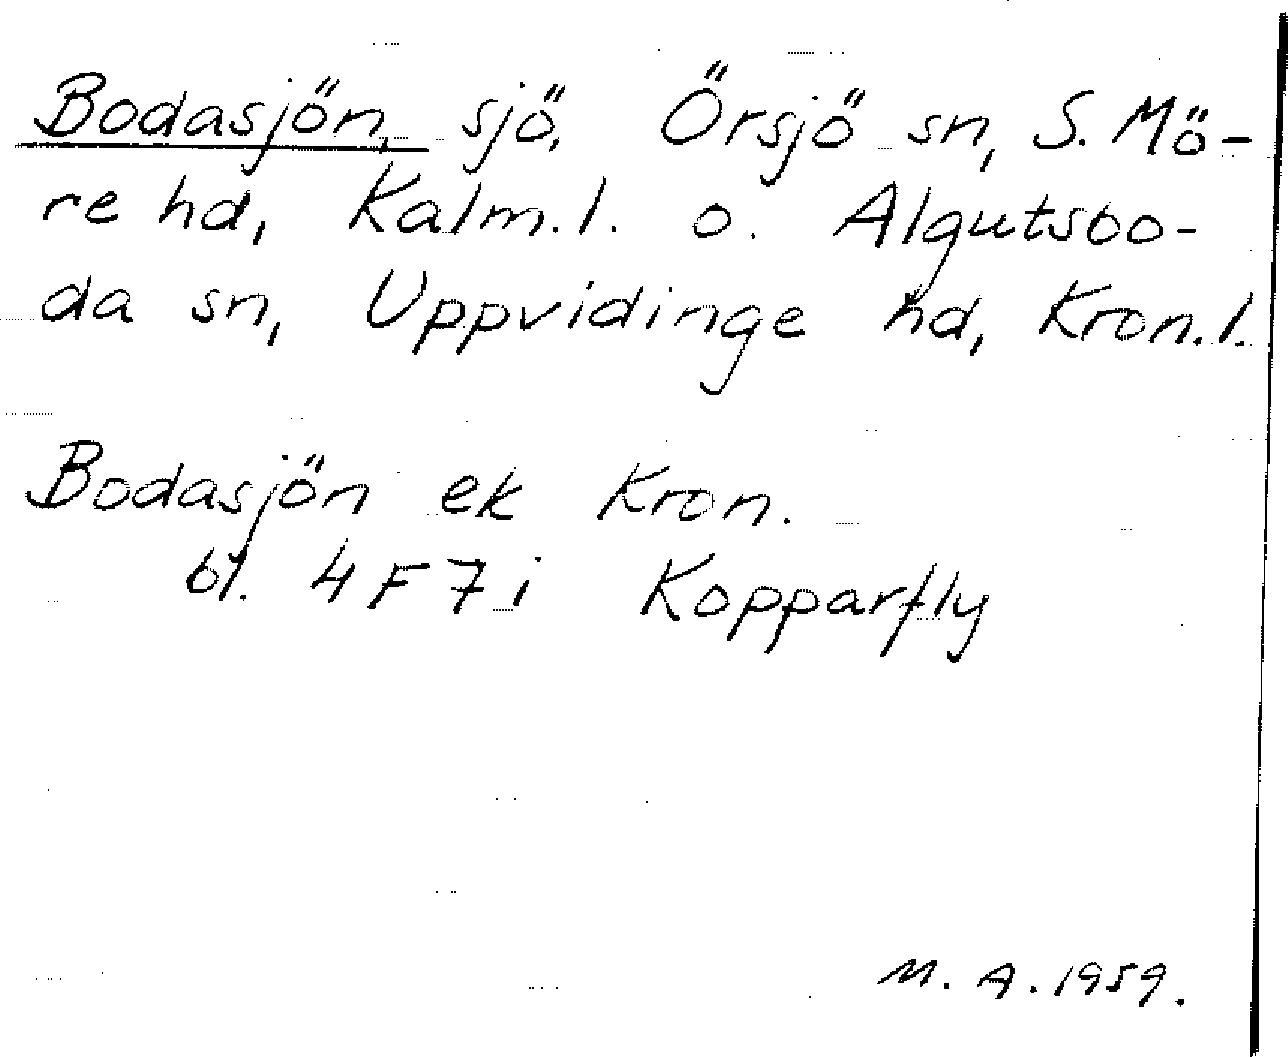 Bodasjön, sjö, Örsjö sn, S. Mö-
re hd, Kalm.l. o. Algutsbo-
da sn, Uppvidinge hd, Kron.l.
Bodasjön ek Kron.
bl. 4F7i Kopparfly
M. A. 1959.